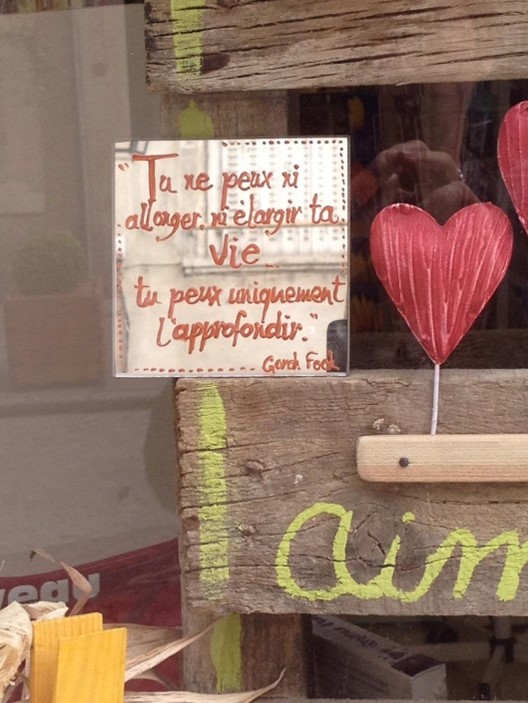 "Tu ne peux ni
allonger, ni élargir ta
vie
tu peux uniquement
l'approfondir."
Gorch Fock
aim